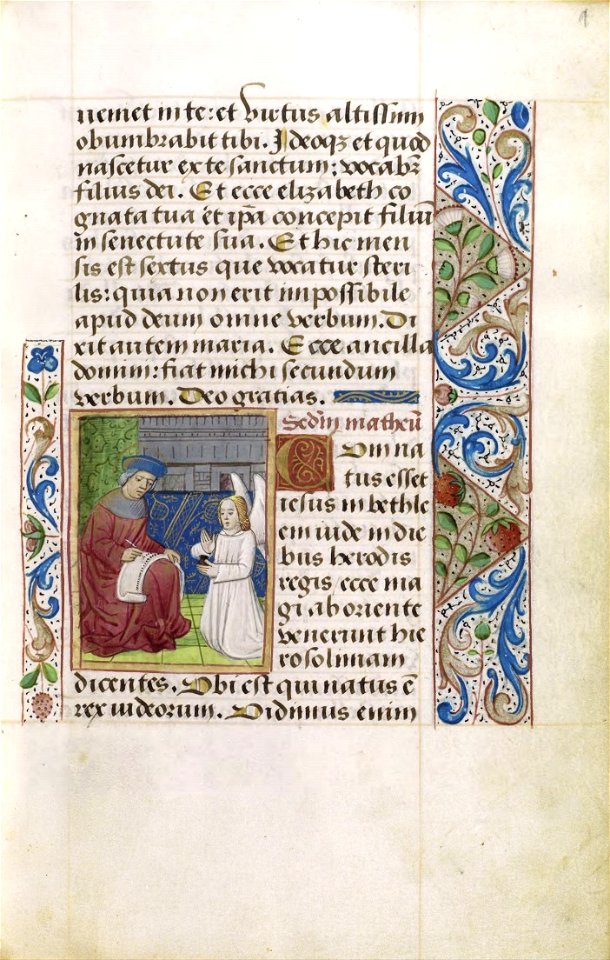 9
ueniet in te: et virtus altissimi
obumbrabit tibi. Ideoqꝫ et quod
nascetur ex te sanctum: vocabr̃
filius dei. Et ecce elizabeth co
gnata tua et ip̃a concepit filiũ
in senectute sua. Et hic men
sis est sextus que vocatur steri
lis: quia non erit impossibile
apud deum omne verbum. Di
xit autem maria. Ecce ancilla
domini: fiat michi secundum
verbum. Deo gratias.
Scd̃m matheũ
Cum na
tus esset
iesus in bethle
em iude in die
bus herodis
regis ecce ma
gi ab oriente
venerunt hie
rosolimam
dicentes. Vbi est qui natus ẽ
rex iudeorum. Vidimus enim